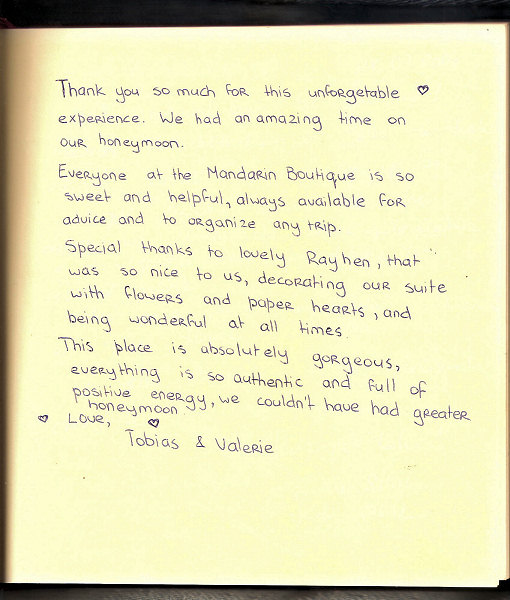 Thank you so much for this unforgetable ♡
experience. We had an amazing time on
our honeymoon.
Everyone at the Mandarin Boutique is so
sweet and helpful, always available for
advice and to organize any trip.
Special thanks to lovely Rayhen, that
was so nice to us, decorating our suite
with flowers and paper hearts, and
being wonderful at all times.
This place is absolutely gorgeous,
everything is so authentic and full of
positive energy, we couldn't have had greater
honeymoon.
♡ Love, ♡
Tobias & Valerie